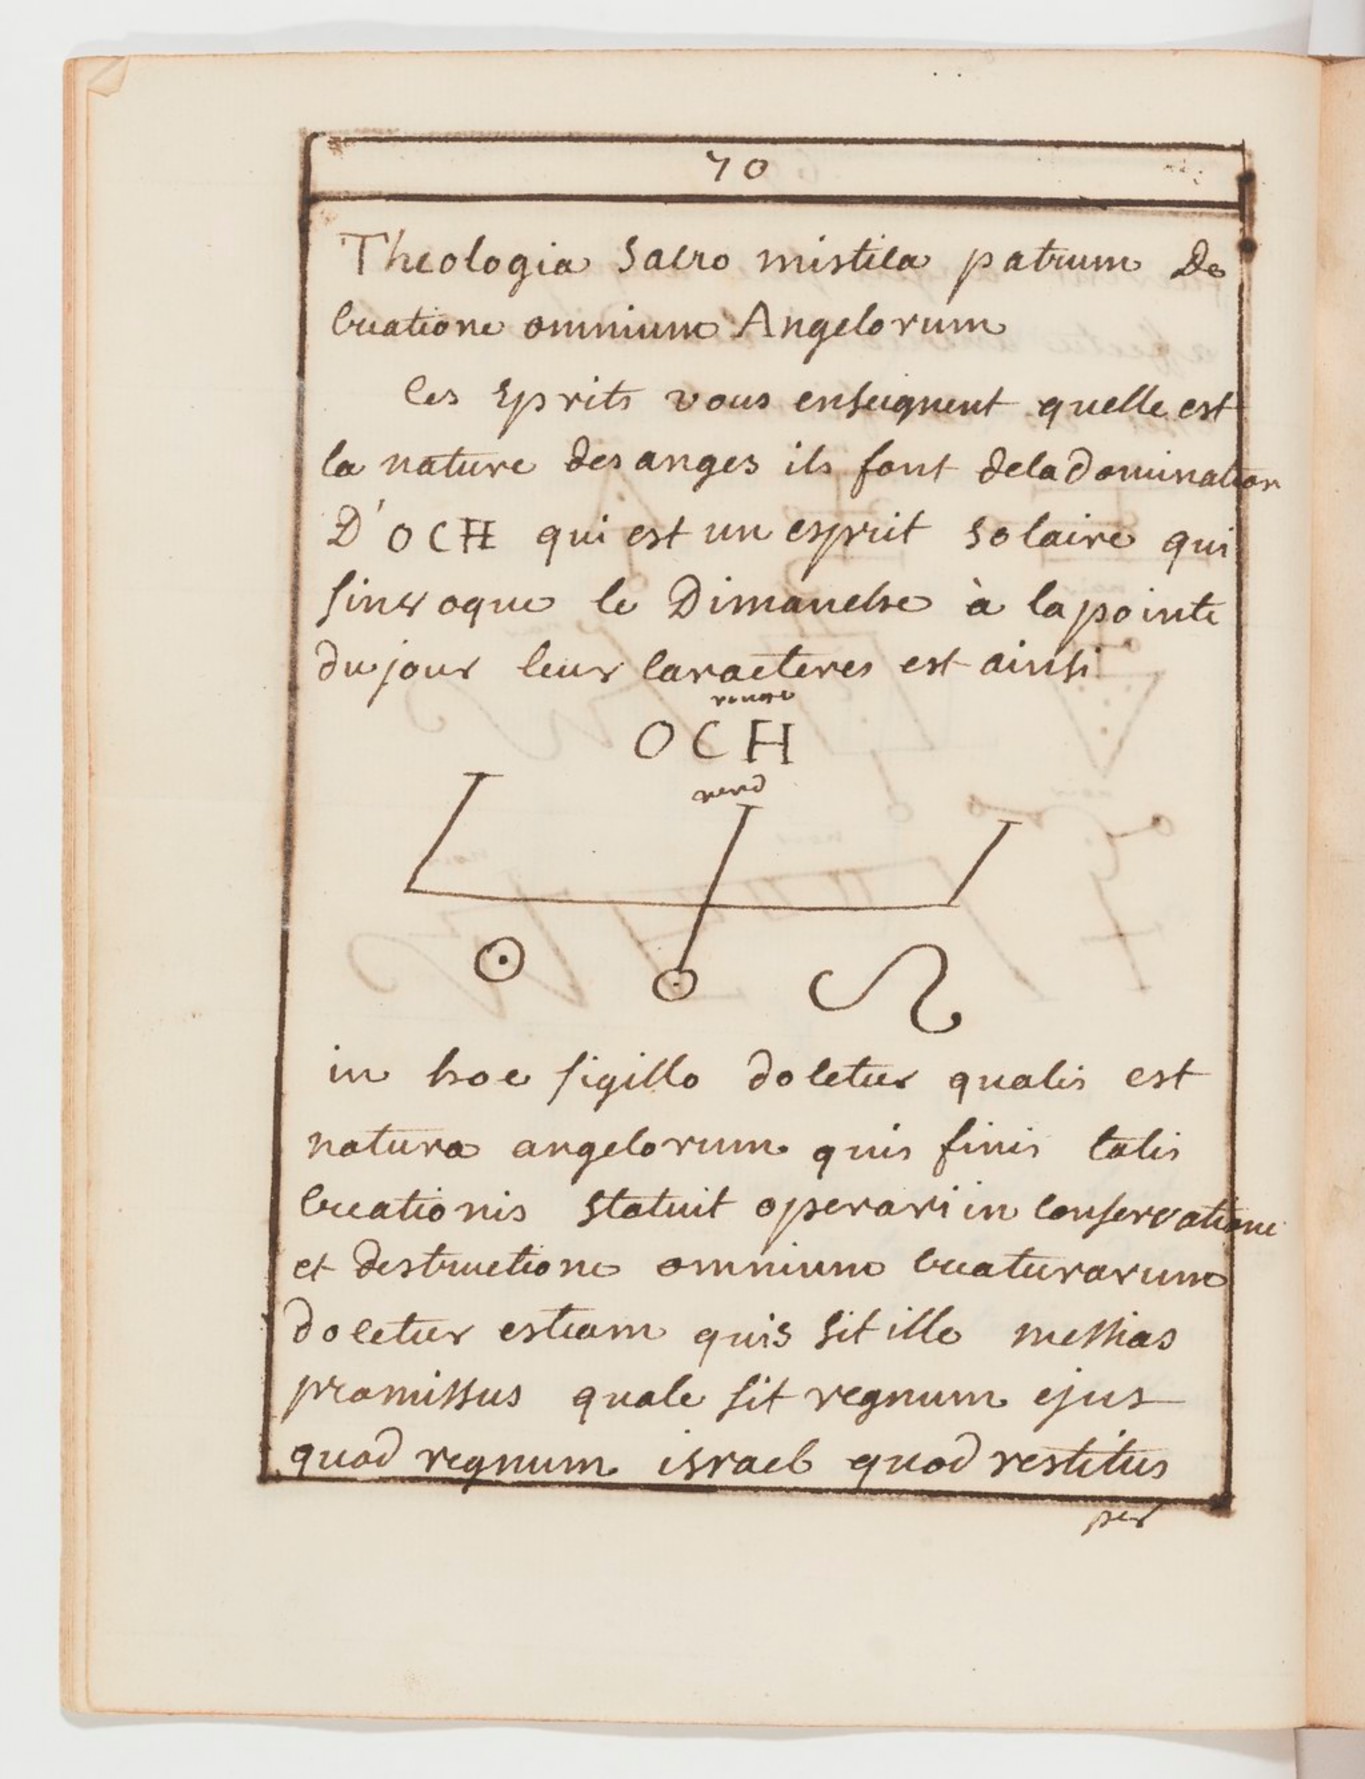 70
Theologia sacro mistica patrum De
creatione omnium Angelorum
Ces sprits vous enseignent quelle est
la nature des anges ils font dela domination
D'OCH qui est un esprit solaire qui
sinvoque le Dimanche à la pointe
du jour leur caracteres est ainsi
rouge
OCH
verd
in hoc sigillo docetur qualis est
natura angelorum quis finis talis
creationis statuit operari in conservatione
et destructione omnium creaturarum
docetur estiam quis sit ille messias
promissus quale sit regnum ejus
quod regnum israel quod restitus
per